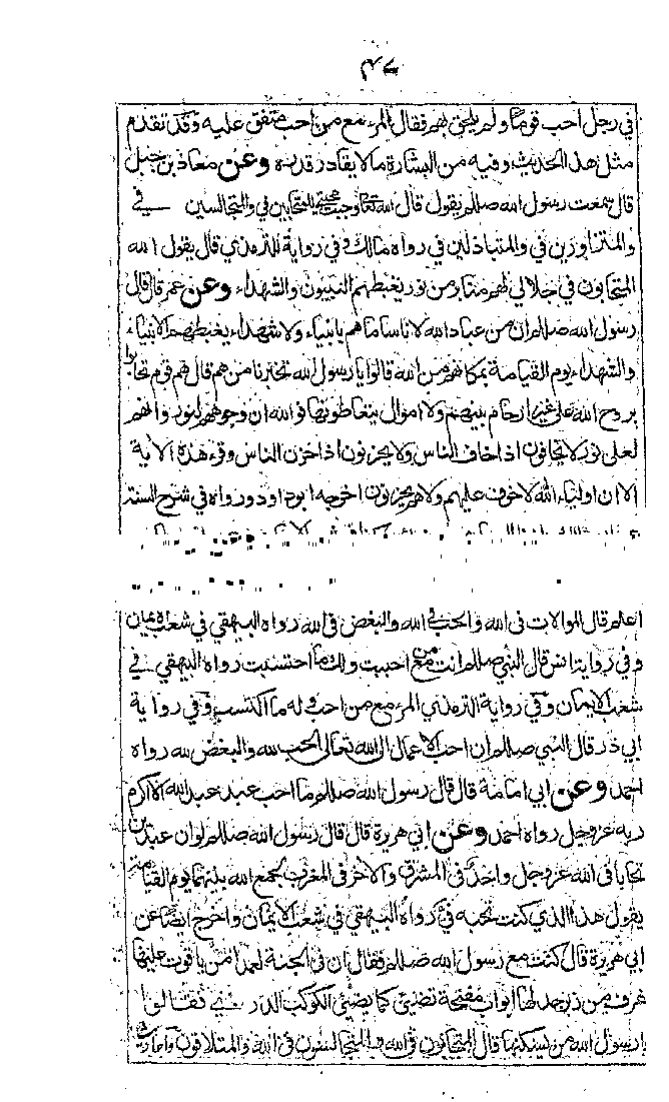 ٤٧
في رجل احب قوما ولم يلحق بهم فقال المرء مع من احب متفق عليه وقد تقدم
مثل هذا الحديث وفيه من البشارة ما لا يقادر قدره وعن معاذ بن جبل
قال سمعت رسول الله صللم يقول قال الله تعالى وجبت محبتي للمتحابين في والمتجالسين في
والمتزاورين في والمتباذلين في رواه مالك وفي رواية للترمذي قال يقول الله
المتحابون في جلالي لهم منابر من نور يغبطهم النبيون والشهداء وعن عمر قال قال
رسول الله صللم ان من عباد الله لاناسا ما هم بانبياء ولا شهداء يغبطهم الانبياء
والشهداء يوم القيامة بمكانهم من الله قالوا يا رسول الله تخبرنا من هم قال هم قوم تحابوا
بروح الله على غير ارحام بينهم ولا اموال يتعاطونها فو الله ان وجوههم لنور وانهم
لعلى نور لا يخافون اذا خاف الناس ولا يحزنون اذا حزن الناس وقرء هذه الاية
الا ان اولياء الله لا خوف عليهم ولا هم يحزنون اخرجه ابو داود ورواه في شرح السنة
اعلم قال الموالات في الله والحب في الله والبغض في الله رواه البيهقي في شعب الايمان
وفي رواية انس قال النبي صللم انت مع من احببت ولك ما احتسبت رواه البيهقي في
شعب الايمان وفي رواية الترمذي المرء مع من احب وله ما اكتسب وفي رواية
ابي ذر قال النبي صللم ان احب الاعمال الى الله تعالى الحب لله والبغض لله رواه
احمد وعن ابي امامة قال قال رسول الله صللم ما احب عبد عبدا لله الا اكرم
ربه عز وجل رواه احمد وعن ابي هريرة قال قال رسول الله صللم لو ان عبدين
تحابا في الله عز وجل واحد في المشرق والآخر في المغرب لجمع الله بينهما يوم القيامة
يقول هذا الذي كنت تحبه في رواه البيهقي في شعب الايمان واخرج ايضا عن
ابي هريرة قال كنت مع رسول الله صللم فقال ان في الجنة لعمدا من ياقوت عليها
غرف من زبرجد لها ابواب مفتحة تضيئ كما يضيئ الكوكب الدري فقالوا
يا رسول الله من يسكنها قال المتحابون في الله والمتجالسون في الله والمتلاقون